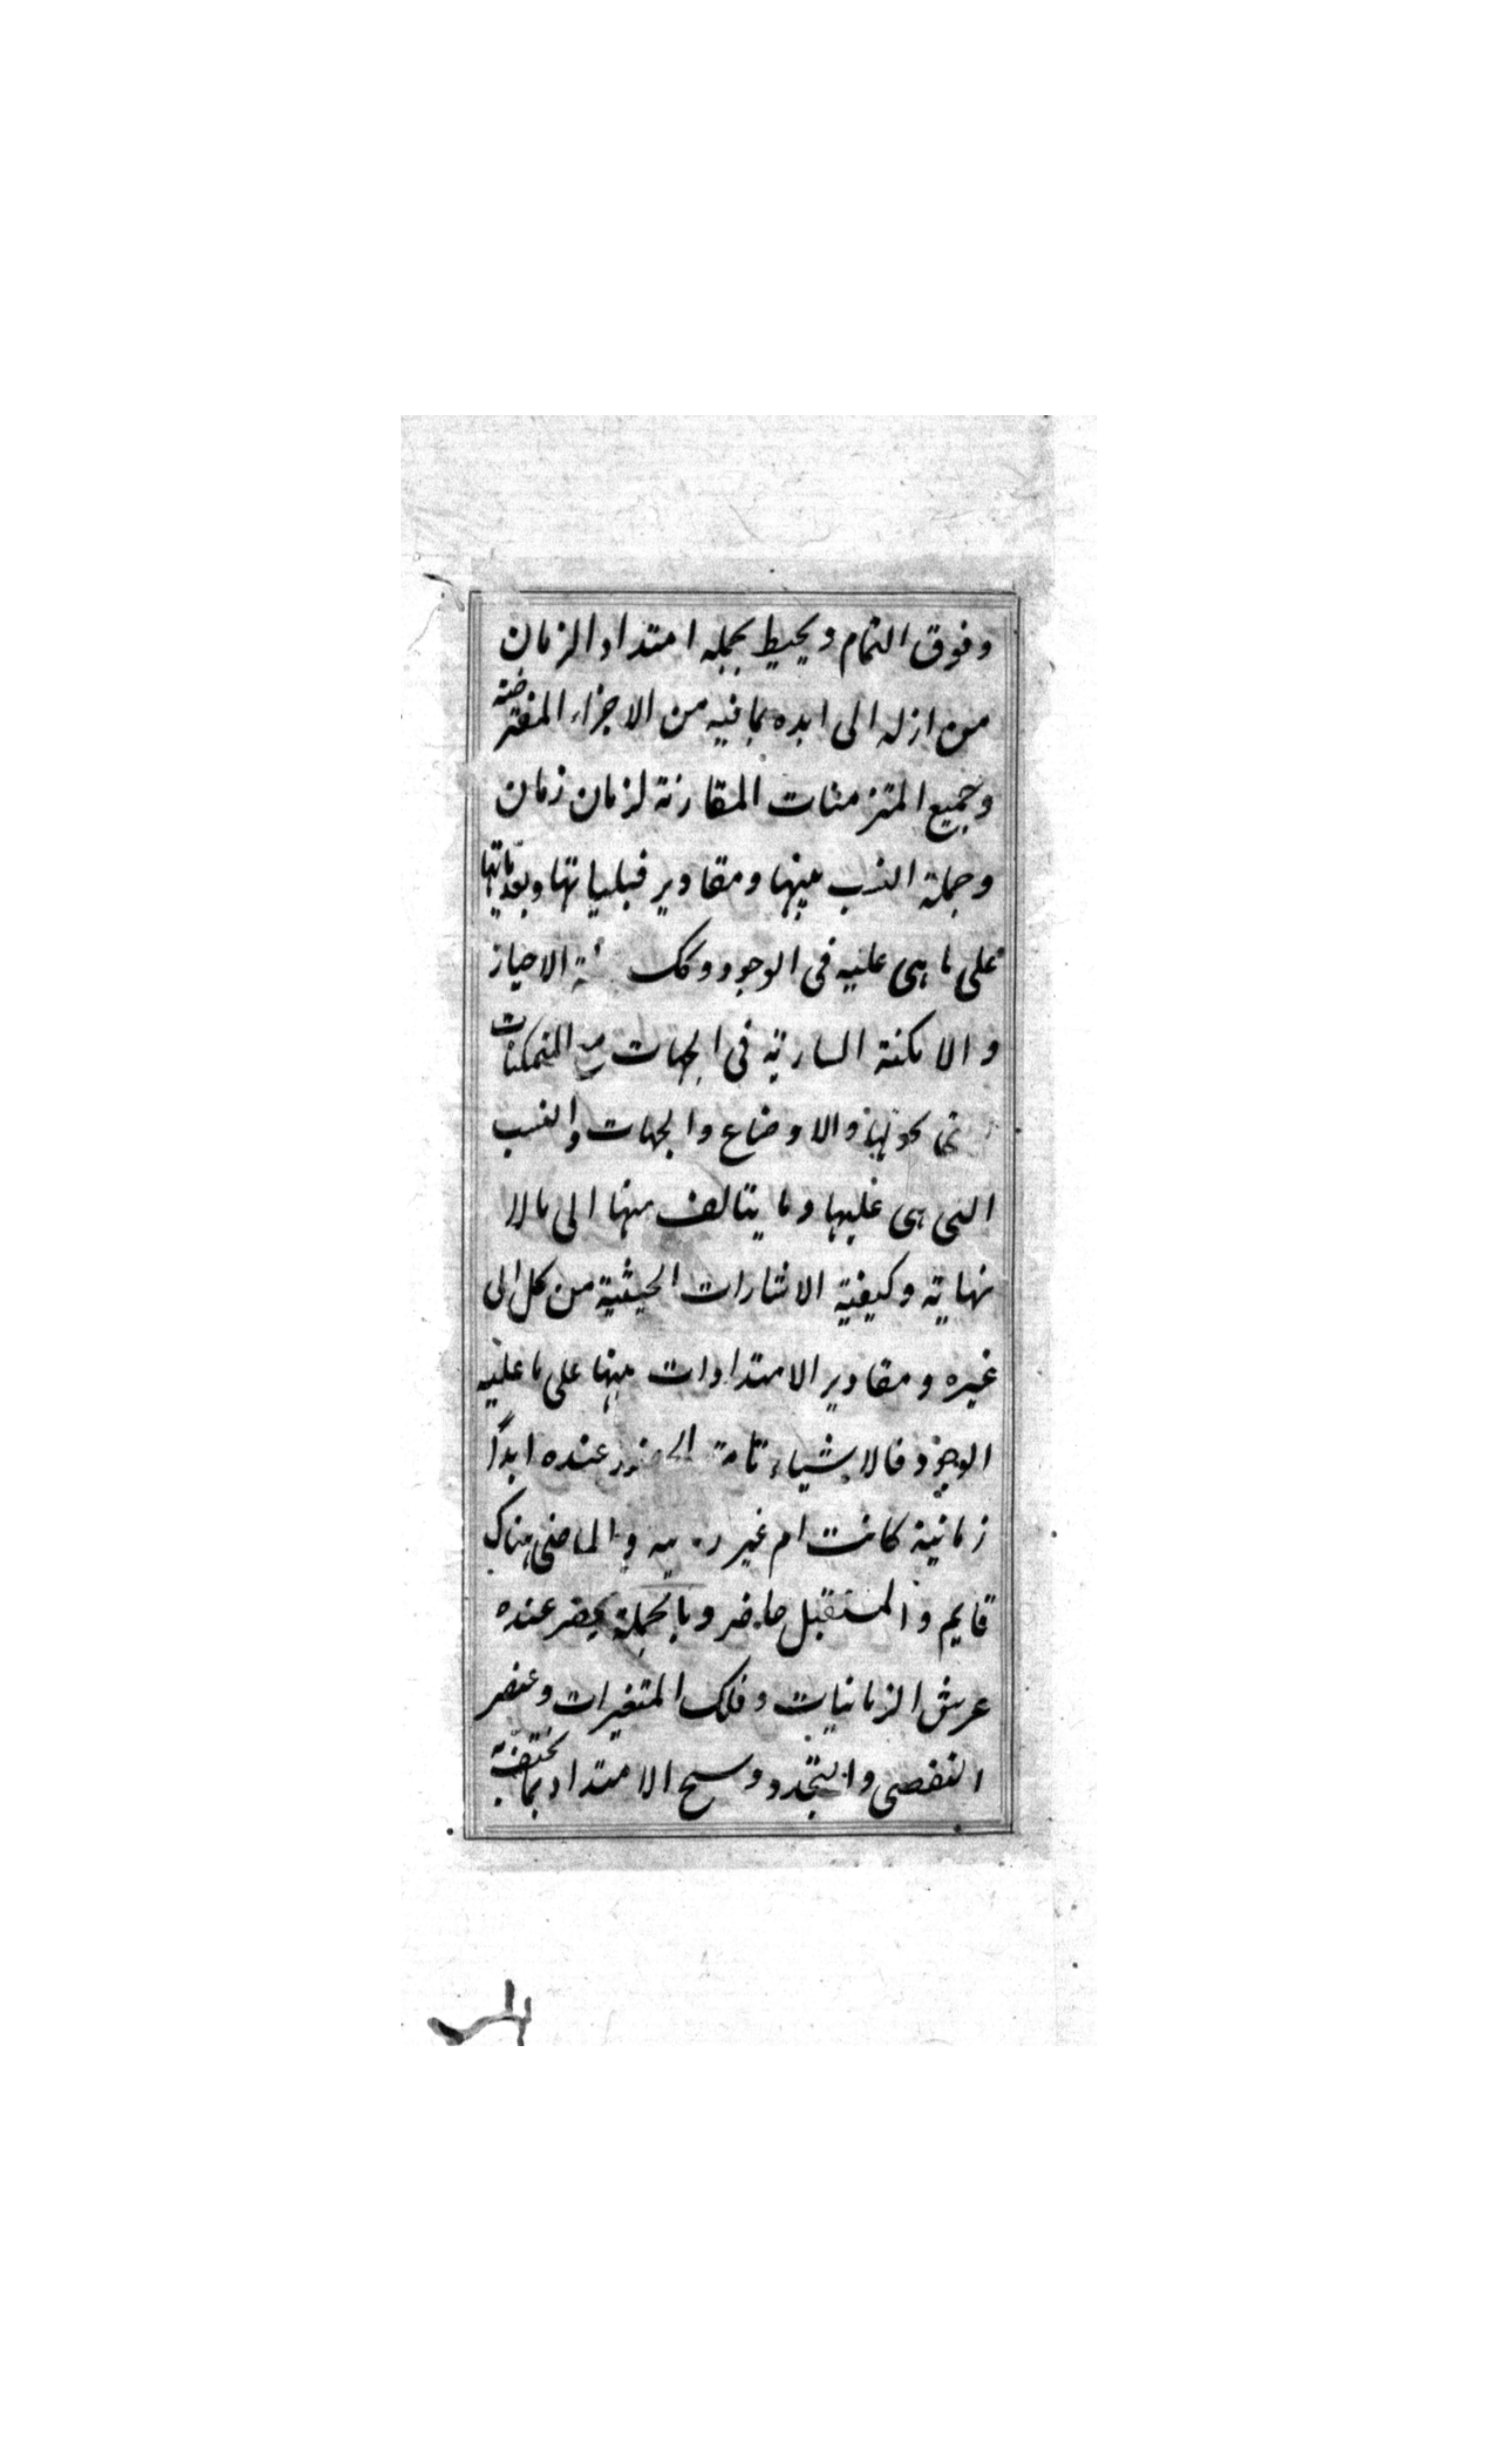 وفوق التمام ويحيط بجمله امتداد الزمان
من ازله الى ابده بما فيه من الاجزاء المفترضة
وجميع المتزمنات المقارنة لزمان زمان
وجملة النسب بينها ومقادير قبلياتها وبعدياتها
على ما هى عليه فى الوجود وكك الاحياز
والامكنة السارية فى الجهات مع المتمكنات
والاوضاع والجهات والنسب
التى هى عليها وما يتالف منها الى ما لا
نهاية وكيفية الاشارات الحيثية من كل الى
غيره ومقادير الامتدادات بينها على ما عليه
الوجود فالاشياء تامة الحضور عنده ابداً
زمانية كانت ام غير والماضى هناك
قايم والمستقبل حاضر وبالجملة يحضر عنده
عرش الزمانيات وفلك المتغيرات وعنصر
التقصى والتجدد وسح الامتداد بما يختصّ به